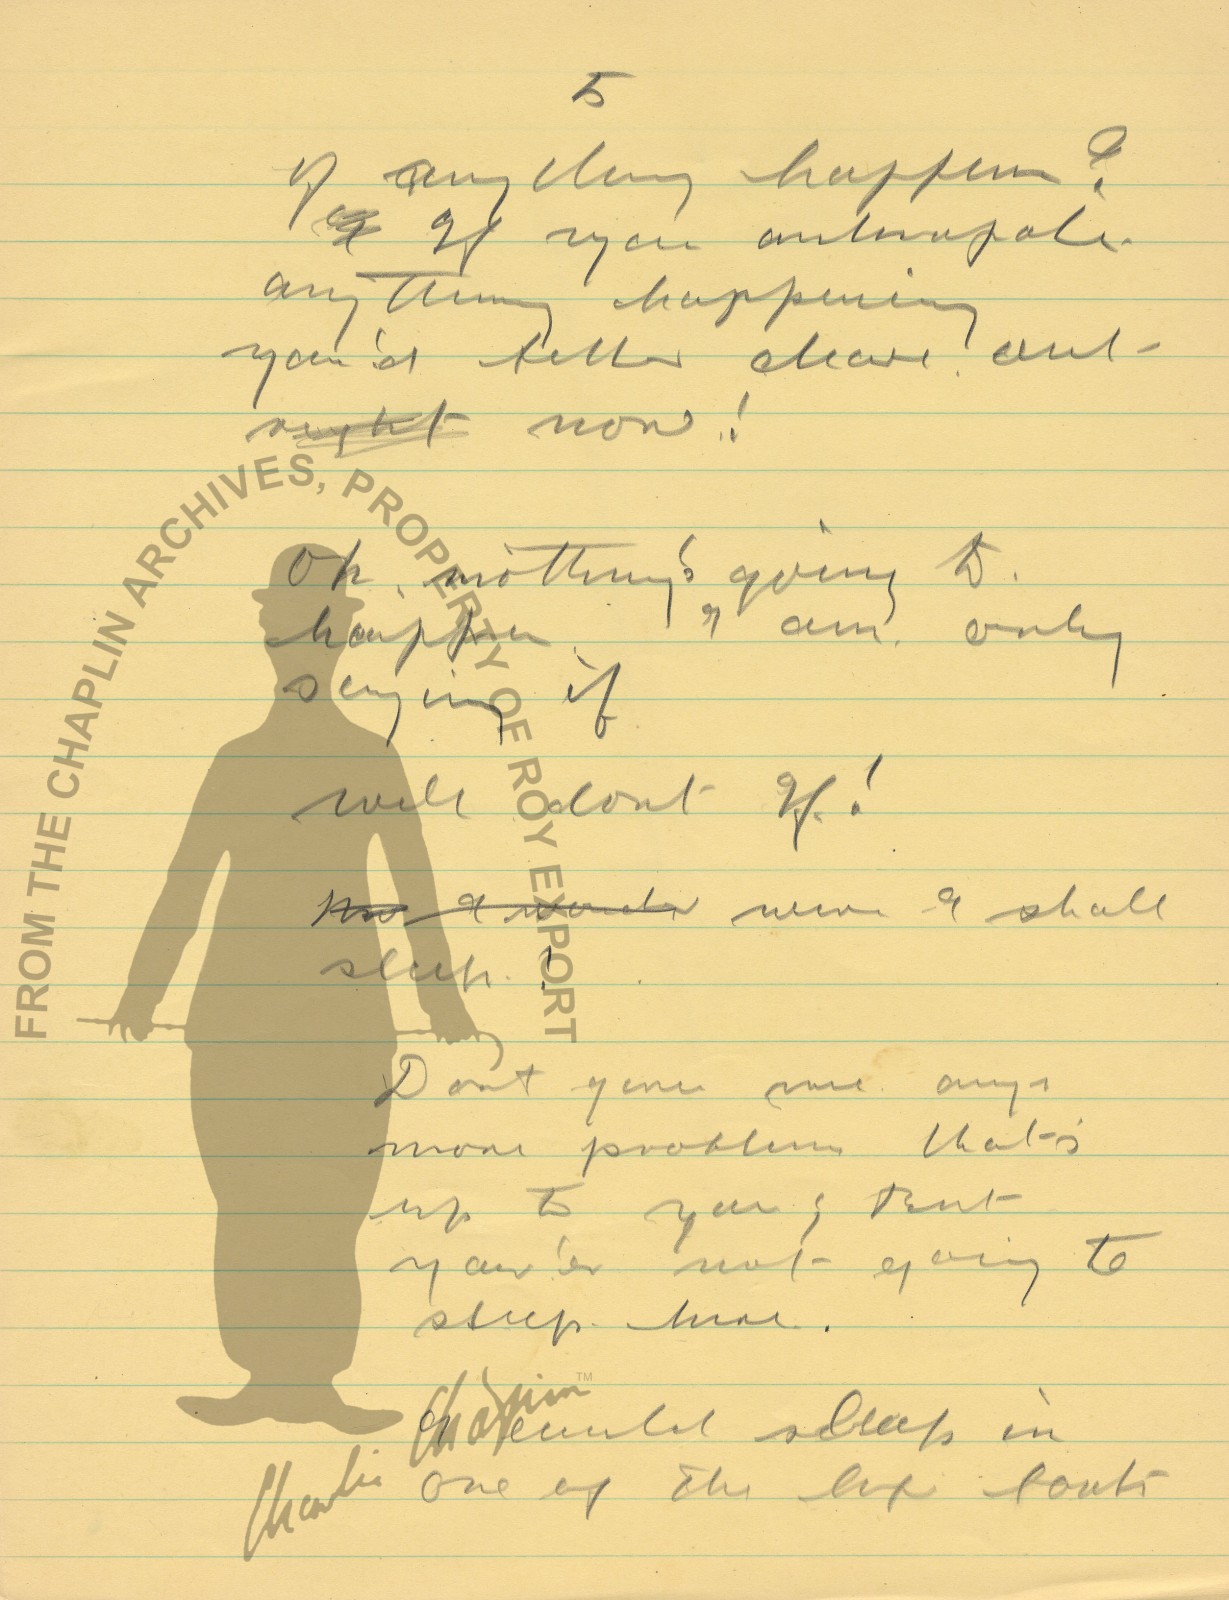 5
If anything happen?
If you anticipate
anything happening
you'd better clear out
right now!
Oh, nothing's going to
happen I am only
saying if
well dont If!
I wonder were I shall
sleep.!
Dont give me any
more problem that's
up to you; But
you'er not going to
sleep here.
I could sleep in
one of the life boats
FROM THE CHAPLIN ARCHIVES, PROPERTY OF ROY EXPORT
Charlie Chaplin™